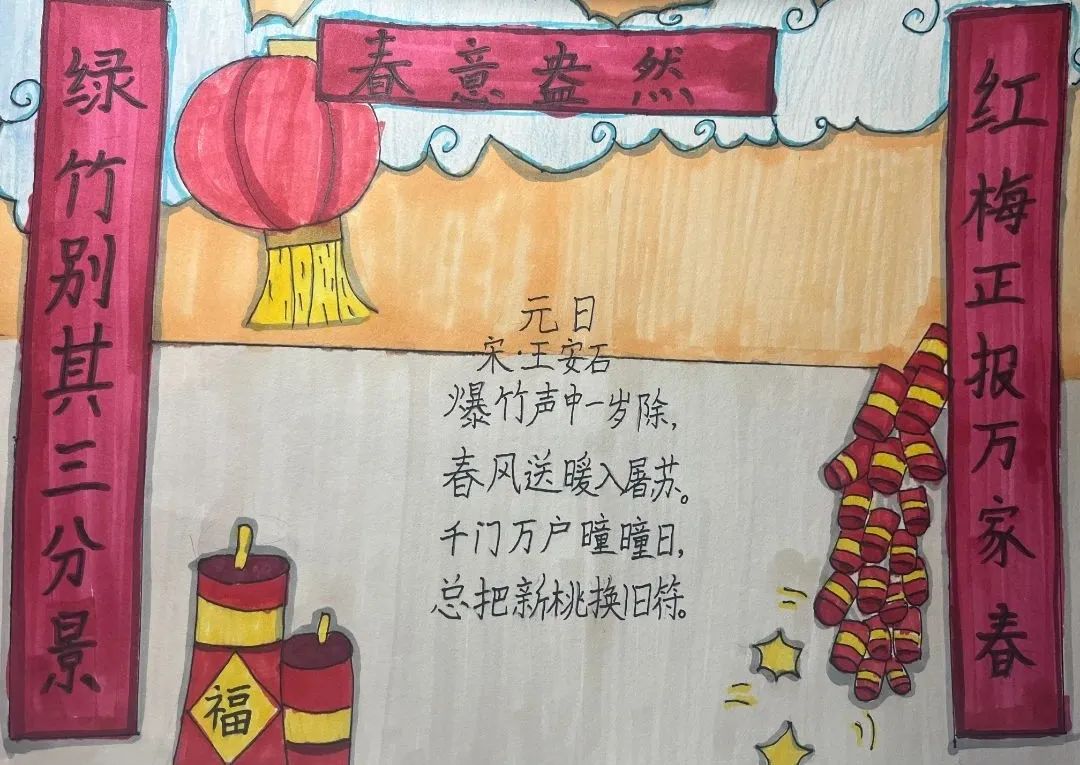 春意盎然
红梅正报万家春
绿竹别其三分景
元日
宋·王安石
爆竹声中一岁除，
春风送暖入屠苏。
千门万户曈曈日，
总把新桃换旧符。
福